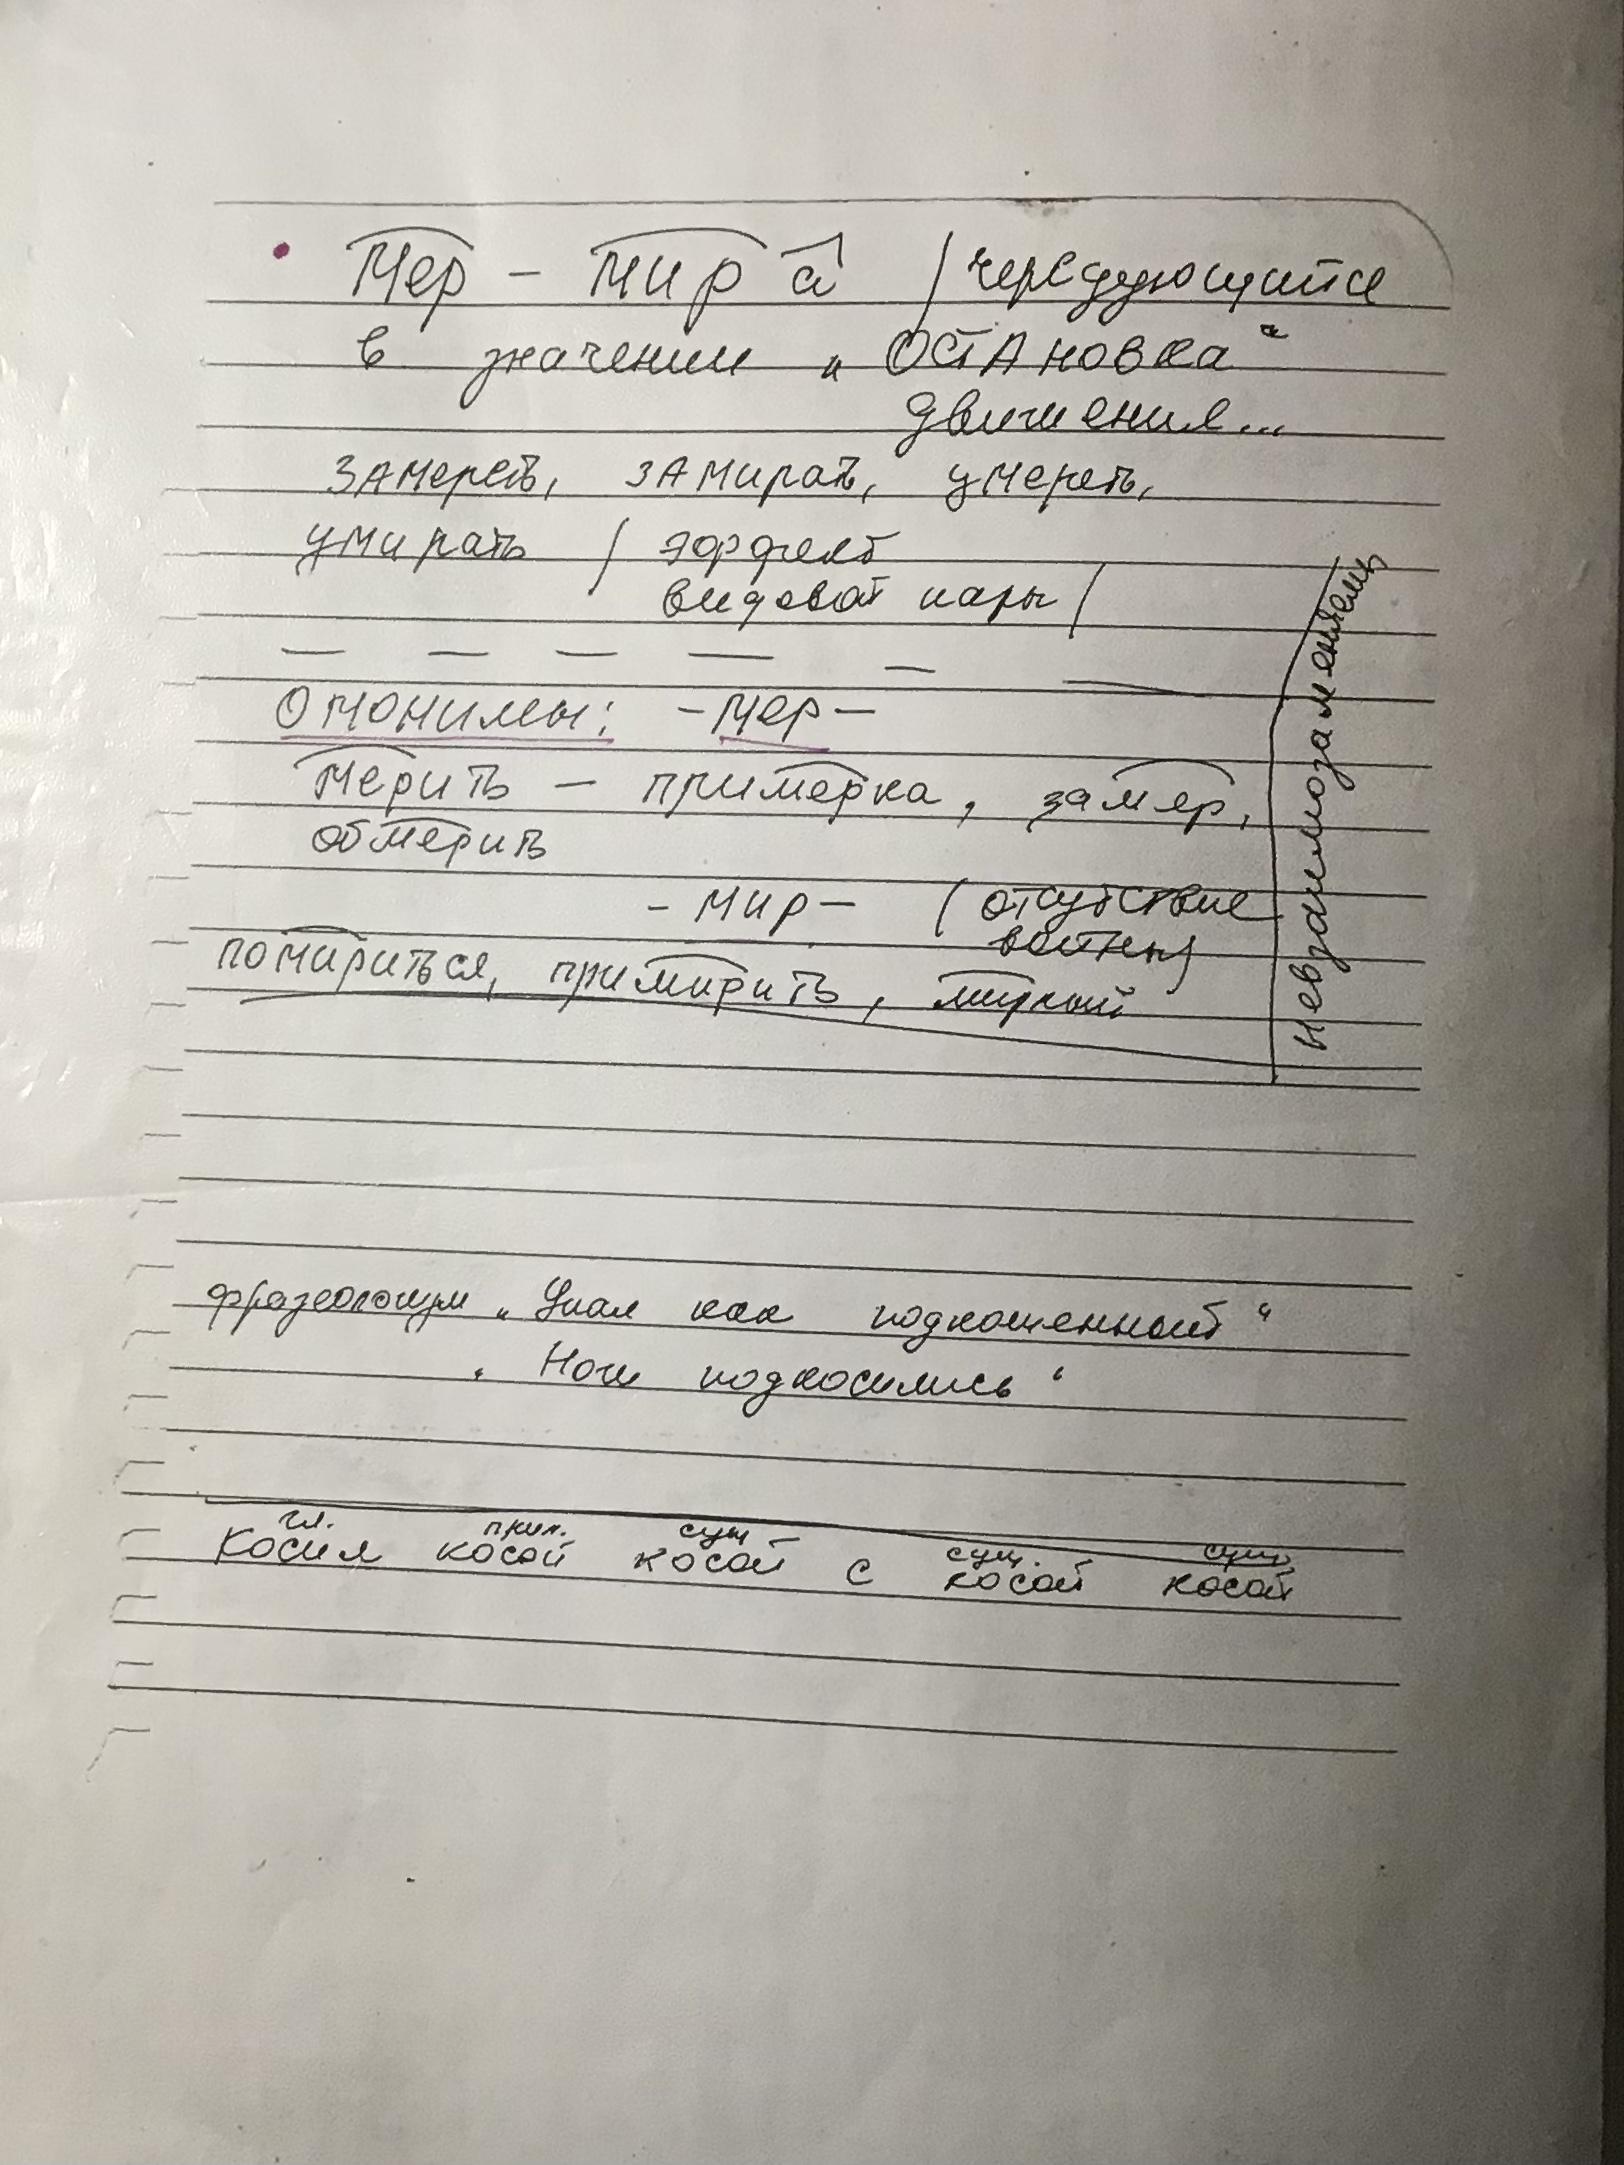 • Мер – мир а / чередующийся
в значении „ОСТАновка“
движения...
ЗАмереть, ЗАмирать, умереть,
умирать / эффект
видовой пары /
Омонимы: –мер–
мерить – примерка, замер,
обмерить
–мир– (отсутствие
войны)
помириться, примирить, мирный
невзаимозаменяемы
фразеологизм „Упал как подкошенный“
„Ноги подкосились“
гл. прил. сущ сущ. сущ.
Косил косой косой с косой косой